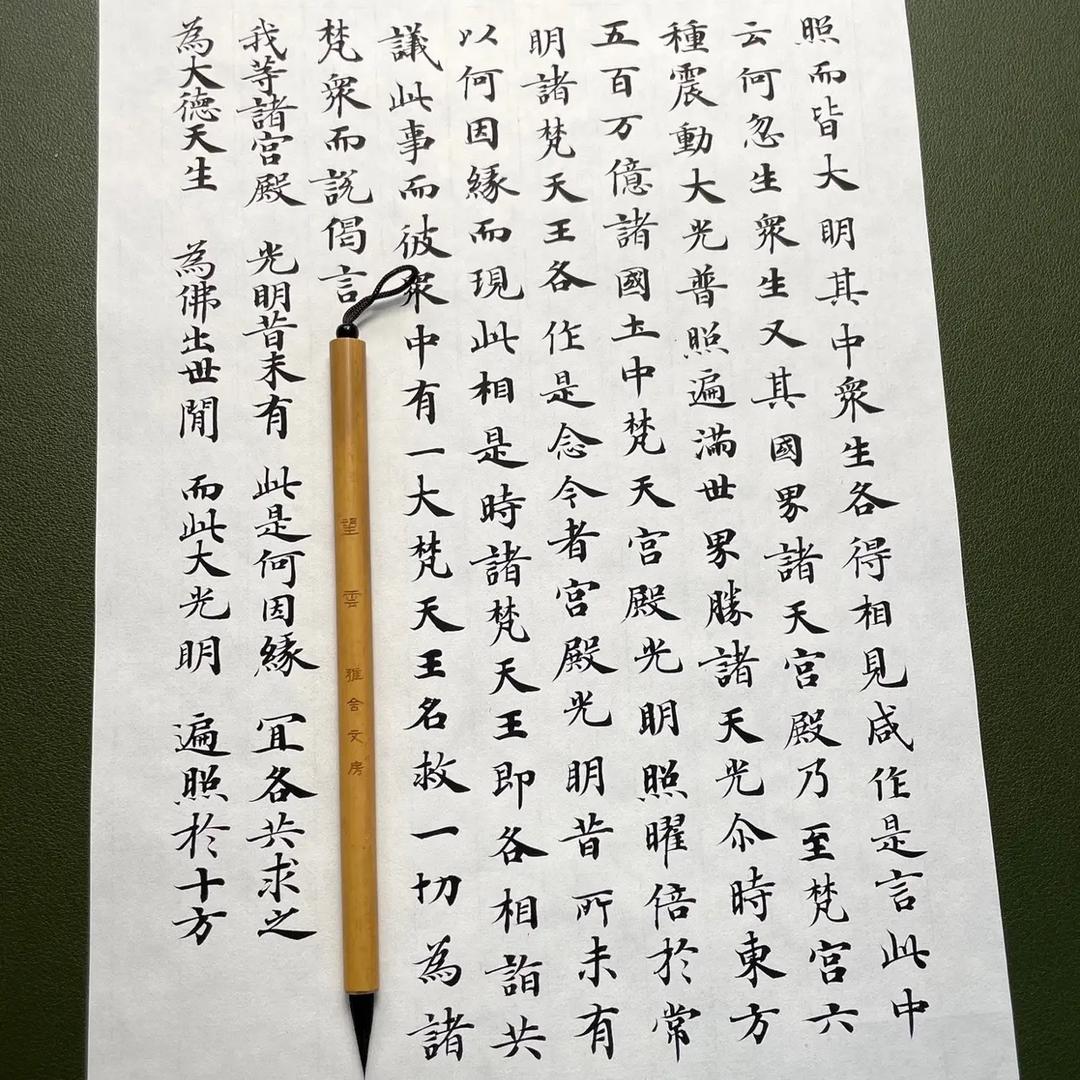 照而皆大明其中衆生各得相見咸作是言此中
云何忽生衆生又其國界諸天宮殿乃至梵宮六
種震動大光普照遍滿世界勝諸天光尒時東方
五百万億諸國土中梵天宮殿光明照曜倍於常
明諸梵天王各作是念今者宮殿光明昔所未有
以何因緣而現此相是時諸梵天王即各相詣共
議此事而彼衆中有一大梵天王名救一切為諸
梵衆而説偈言
我等諸宮殿 光明昔未有 此是何因緣 冝各共求之
為大德天生 為佛出世間 而此大光明 遍照於十方
望雲 雅舍文房